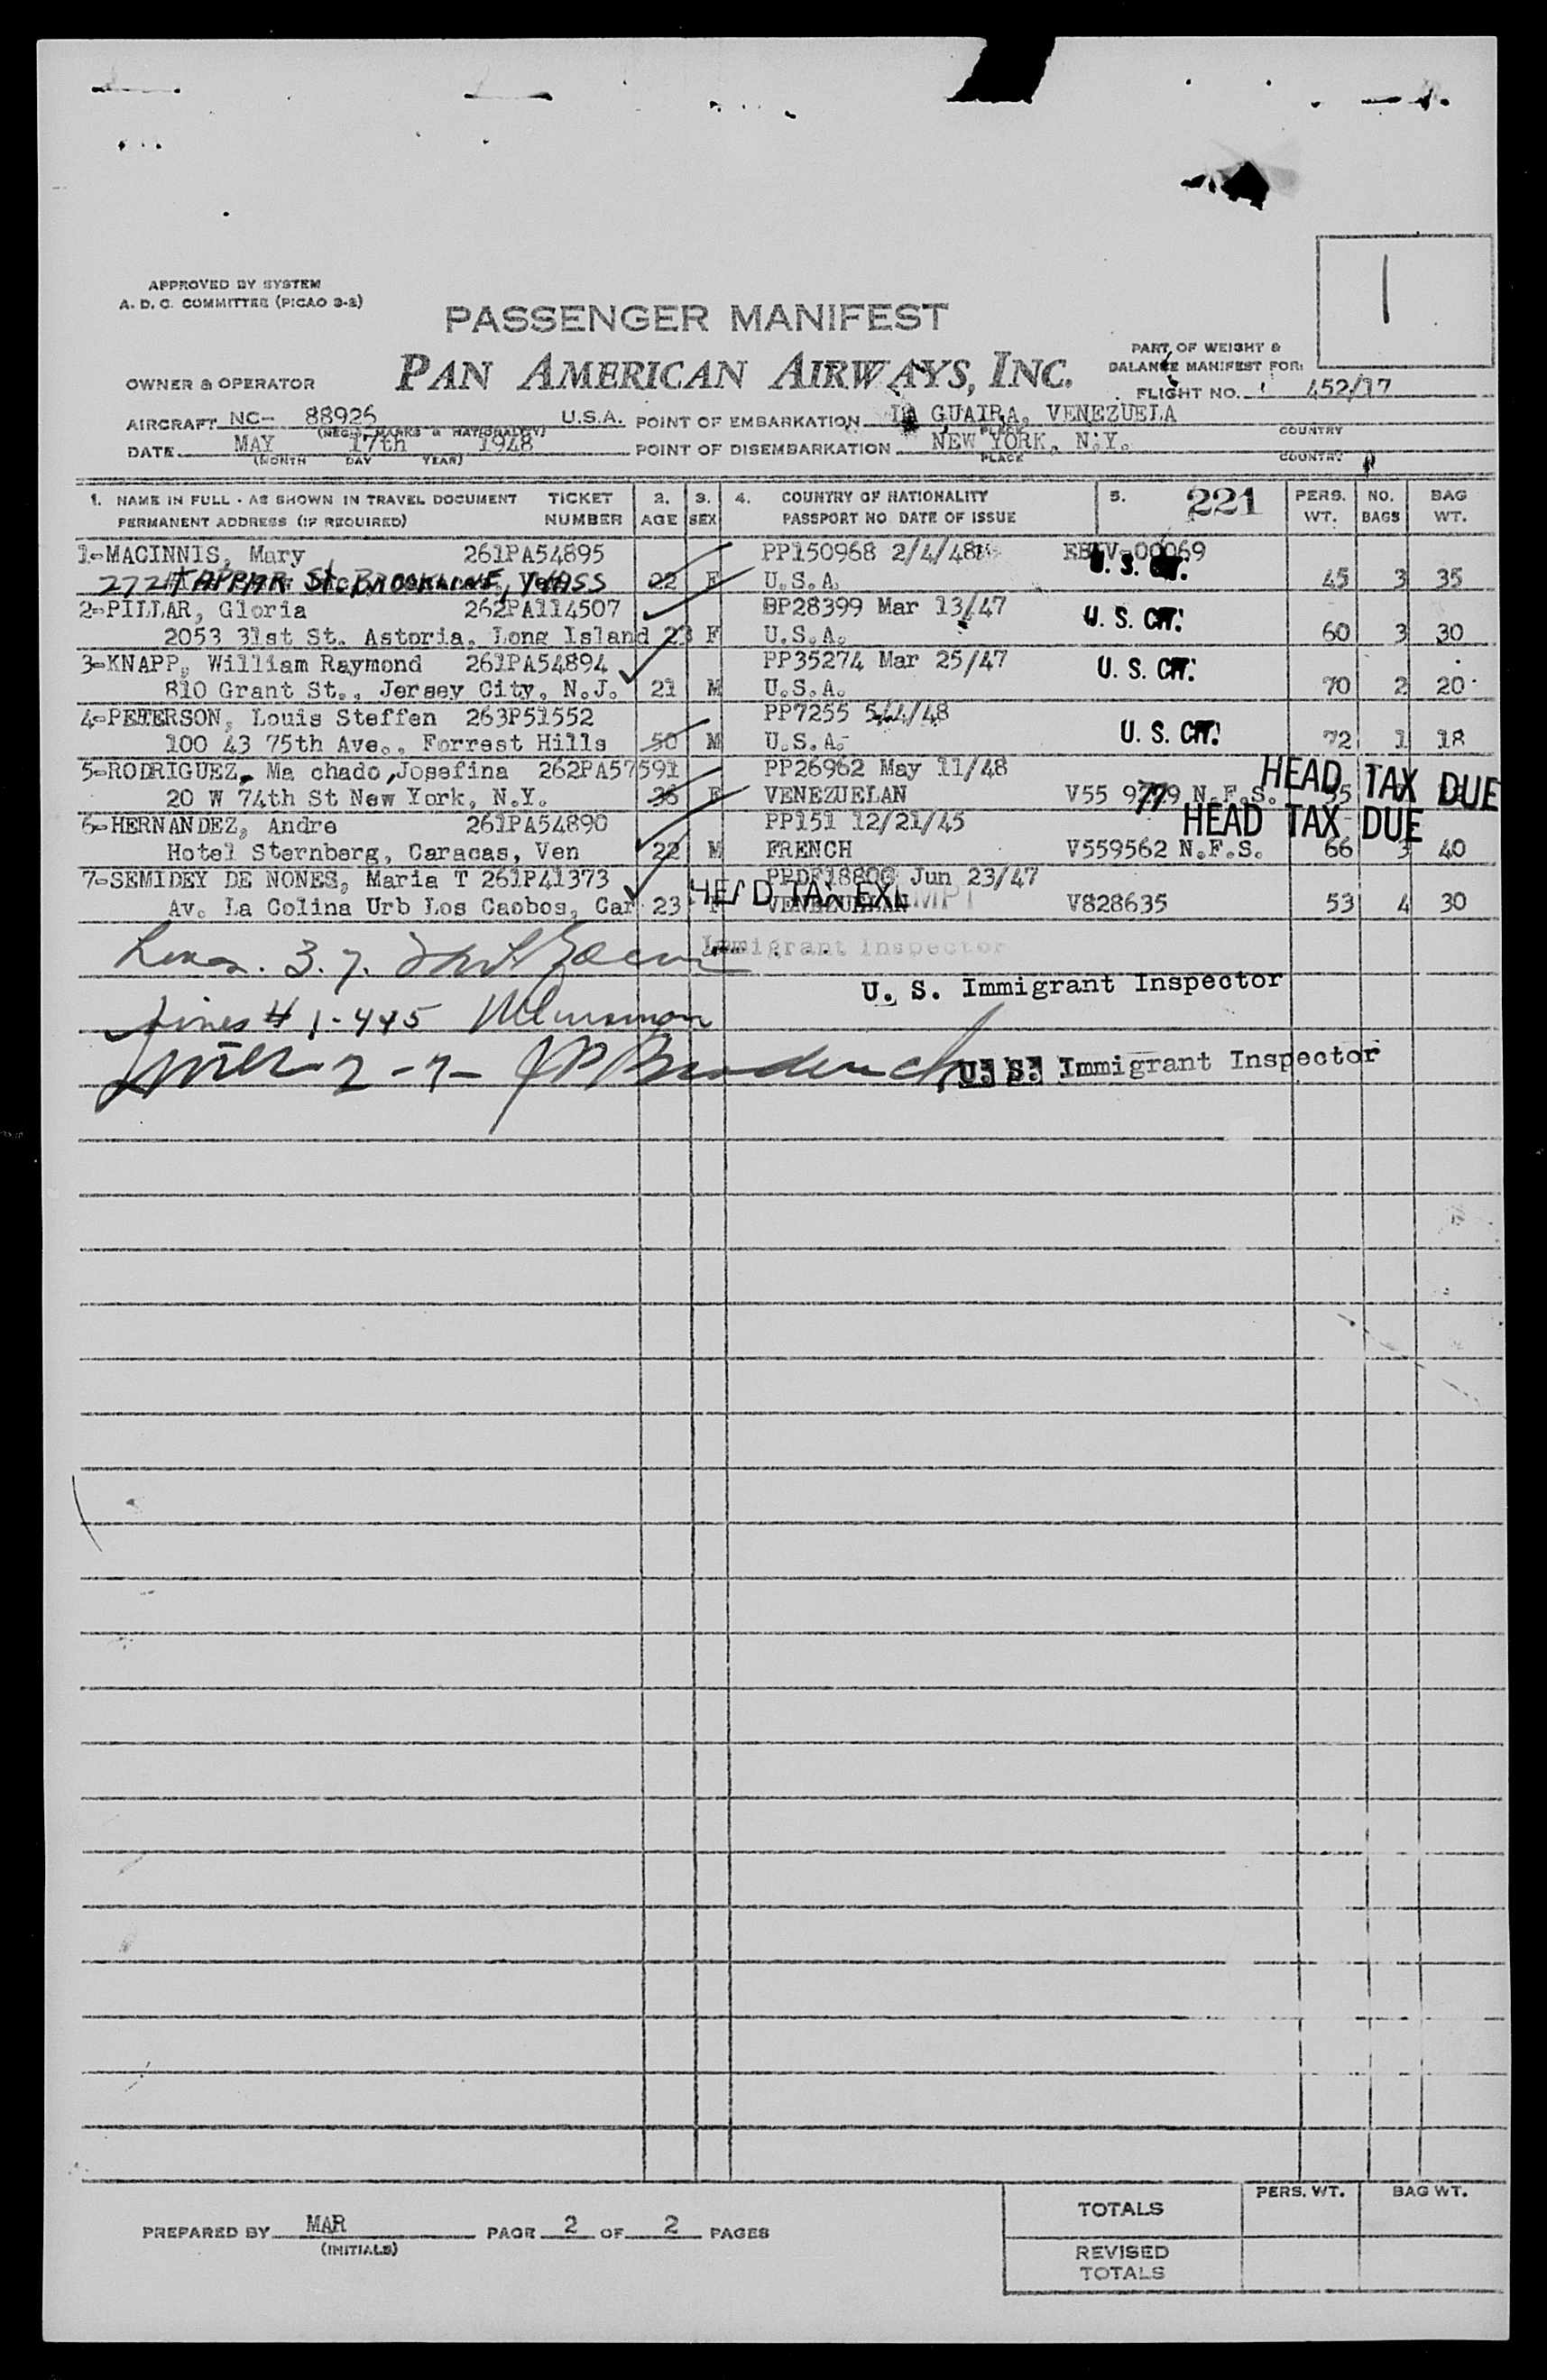 1
APPROVED BY SYSTEM
A. D. C. COMMITTEE (PICAO 3-2)
PASSENGER MANIFEST
PAN AMERICAN AIRWAYS, INC.
PART OF WEIGHT &
BALANCE MANIFEST FOR:
OWNER & OPERATOR
FLIGHT NO. 452/17
AIRCRAFT NC- 88925 U.S.A. POINT OF EMBARKATION LA GUAIRA, VENEZUELA
PLACE COUNTRY
DATE MAY 17th 1948 POINT OF DISEMBARKATION NEW YORK, N.Y.
(MONTH DAY YEAR) PLACE COUNTRY
1. NAME IN FULL - AS SHOWN IN TRAVEL DOCUMENT TICKET 2. 3. 4. COUNTRY OF NATIONALITY 5. 221 PERS. NO. BAG
PERMANENT ADDRESS (IF REQUIRED) NUMBER AGE SEX PASSPORT NO DATE OF ISSUE WT. BAGS WT.
1-MACINNIS, Mary 261PA54895 PP150968 2/4/48
272 TAPPAR St. BROOKLINE, MASS 22 F U.S.A. U. S. CIT. 45 3 35
2-PILLAR, Gloria 262PA114507 BP28399 Mar 13/47 U. S. CIT.
2053 31st St. Astoria, Long Island 23 F U.S.A. 60 3 30
3-KNAPP, William Raymond 261PA54894 PP35274 Mar 25/47 U. S. CIT.
810 Grant St., Jersey City, N.J. 21 M U.S.A. 70 2 20
4-PETERSON, Louis Steffen 263P51552 PP7255 5/4/48 U. S. CIT.
100 43 75th Ave., Forrest Hills 50 M U.S.A. 72 1 18
5-RODRIGUEZ, Ma chado, Josefina 262PA57591 PP26962 May 11/48 HEAD TAX DUE
20 W 74th St New York, N.Y. 36 F VENEZUELAN N.F.S.
6-HERNANDEZ, Andre 261PA54890 PP151 12/21/45 HEAD TAX DUE
Hotel Sternberg, Caracas, Ven 22 M FRENCH V559562 N.F.S. 66 3 40
7-SEMIDEY DE NONES, Maria T 261P41373 Jun 23/47
HEAD TAX EXEMPT
Av. La Colina Urb Los Caobos, Car 23 F VENEZUELAN V828635 53 4 30
Immigrant Inspector
U. S. Immigrant Inspector
U. S. Immigrant Inspector
PREPARED BY MAR PAGE 2 OF 2 PAGES
(INITIALS)
TOTALS PERS. WT. BAG WT.
REVISED
TOTALS